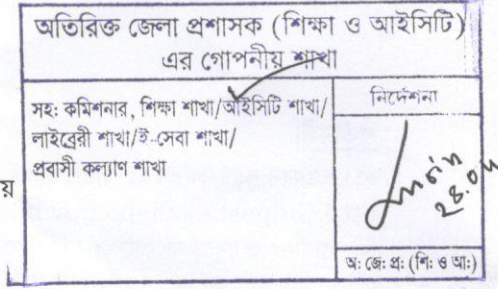 অতিরিক্ত জেলা প্রশাসক (শিক্ষা ও আইসিটি)
এর গোপনীয় শাখা
সহ: কমিশনার, শিক্ষা শাখা/আইসিটি শাখা/
লাইব্রেরী শাখা/ই-সেবা শাখা/
প্রবাসী কল্যাণ শাখা
নির্দেশনা
য়
অ: জে: প্র: (শি: ও আ:)